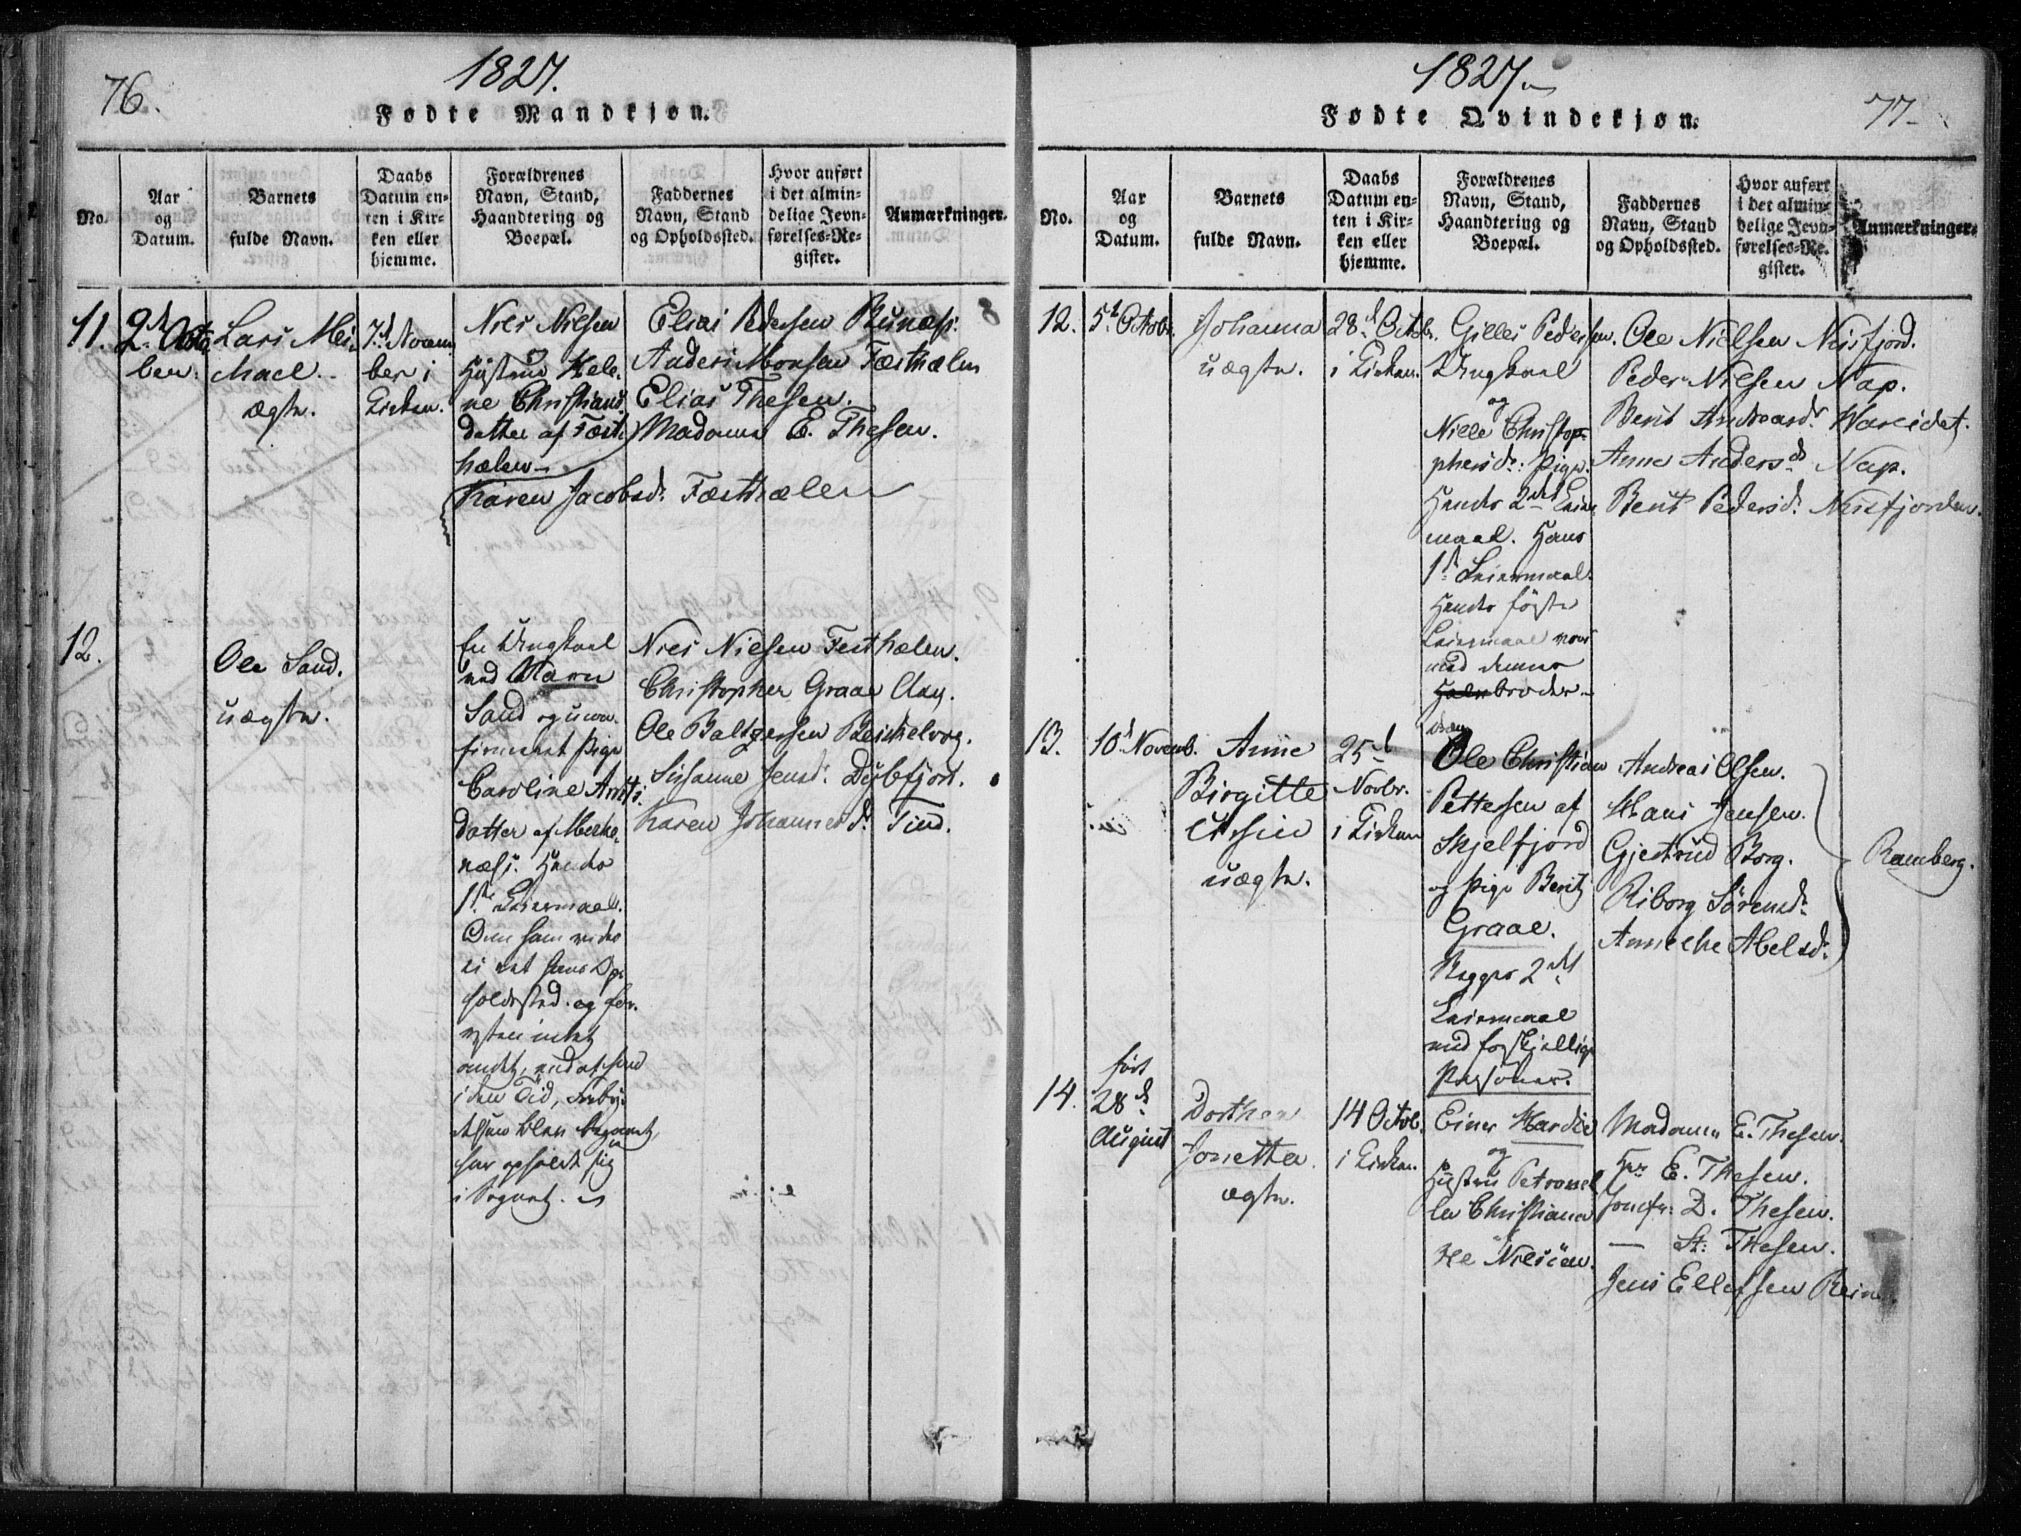 76.
1827.
Fødte Mandkjøn.
No.
Aar
og
Datum.
Barnets
fulde Navn.
Daabs
Datum en-
ten i Kir-
ken eller
hjemme.
Forældrenes
Navn, Stand,
Haandtering og
Boepæl.
Faddernes
Navn, Stand
og Opholdssted.
Hvor anført
i det almin-
delige Jevn-
førelses-Re-
gister.
Anmærkninger.
11.
2d Octo
ber.
Lars Mei
chael
ægte.
7d Novem
ber i
Kirken.
Niels Nilsen
Hustrue Hele
ne Christians
datter af Fæst
hælen
Elias Pedersen Runæss.
Anders Monsen Festhælen
Elias Thesen.
Madame E. Thesen.
Karen Jacobsd. Fæsthælen
12.
Ole Sand.
uægte.
En Ungkarl
ved Navn
Sand og ucon
firmeret Pige
Caroline
datter af
næss. Hendes
1ste Leiermaal.
Den som vides
ei
holdssted og for
intet
andet, end at
i den Tid,
har opholdt sig
i Sognet.
Niels Nielsen Festhælen.
Christopher Graae
Ole Baltzersen
Susanne Jensd. Dybfjord.
Karen Johannesd. Tind.
1827
Fødte Qvindekjøn.
77
No.
Aar
og
Datum.
Barnets
fulde Navn.
Daabs
Datum en-
ten i Kir-
ken eller
hjemme.
Forældrenes
Navn, Stand,
Haandtering og
Boepæl.
Faddernes
Navn, Stand
og Opholdssted.
Hvor anført
i det almin-
delige Jevn-
førelses-Re-
gister.
Anmærkninger.
12.
5t Octobr.
Johanna
uægte.
28d Octob.
i Kirken.
Gilles Pedersen.
Ungkarl
og
Nille Christop-
phersd: Pige.
Hendes 2det Leier
maal. Hans
1ste Leiermaal.
Hendes første
Leiermaal var
med denne
broder
Ole Nielsen Nusfjord.
Peder Nielsen Nap.
Berit Andreasdr
Anne Andersd Nap.
Berit Pedersd. Nusfjorden.
13.
10d Novemb.
Anne
Birgitte
uægte.
25d
Novbr.
i Kirken
Ole Christian
Pettersen af
Skjelfjord
og Pige Berit
Graae.
Begges 2det
Leiermaal
med forskjellige
Personer.
Andreas Olsen.
Hans Jensen.
Gjertrud Borg.
Riborg Sørensd.
Anneche Abelsd.
Ramberg.
14.
født
28d
August
Dorthea
Jonetta
ægte.
14 Octob.
i Kirken
Einer
og
Hustru Petronel
la Christiana
Nielsen.
Madame E. Thesen.
Hr. E. Thesen.
Jomfr: D. Thesen.
— St: Thesen.
Jens Ellefsen Reine.